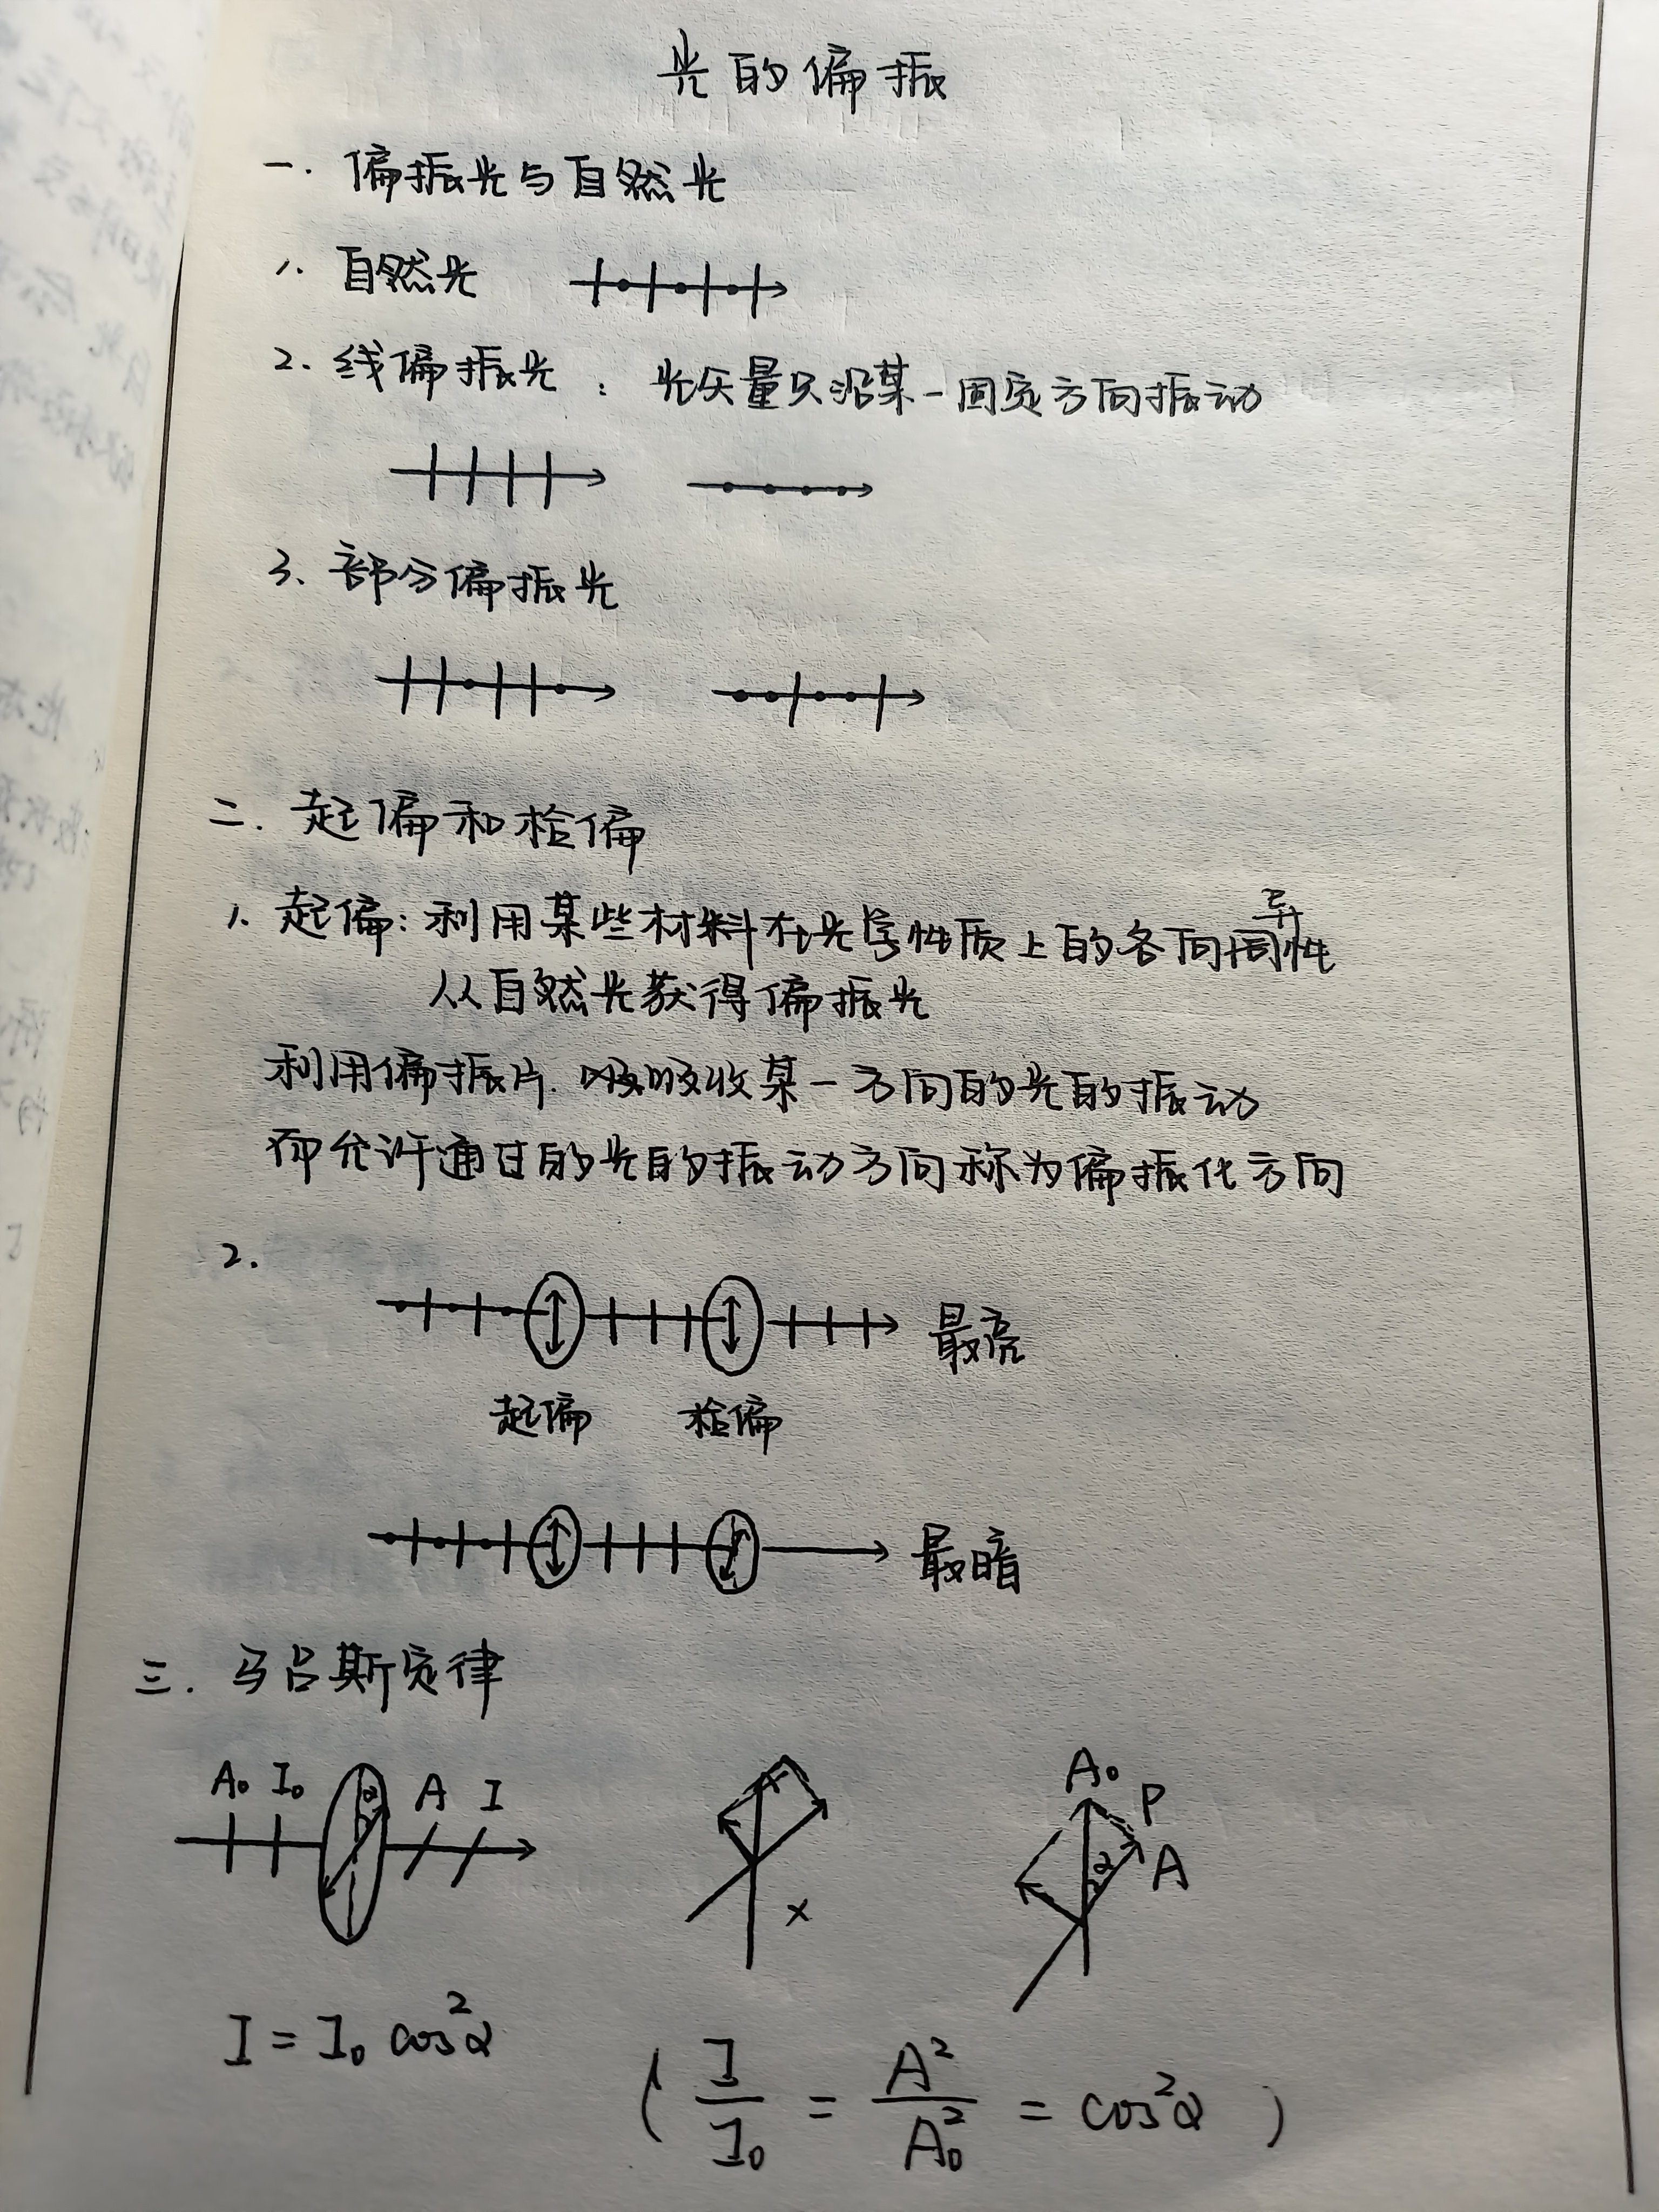 光的偏振
一. 偏振光与自然光
1. 自然光
2. 线偏振光 : 光矢量只沿某一固定方向振动
3. 部分偏振光
二. 起偏和检偏
异
1. 起偏: 利用某些材料在光学性质上的各向同性
从自然光获得偏振光
利用偏振片. 吸收某一方向的光的振动
而允许通过的光的振动方向称为偏振化方向
2.
最亮
起偏 检偏
最暗
三. 马吕斯定律
A₀ I₀ α A I
x
A₀ P
α A
I = I₀ cos²α
( I/I₀ = A²/A₀² = cos²α )